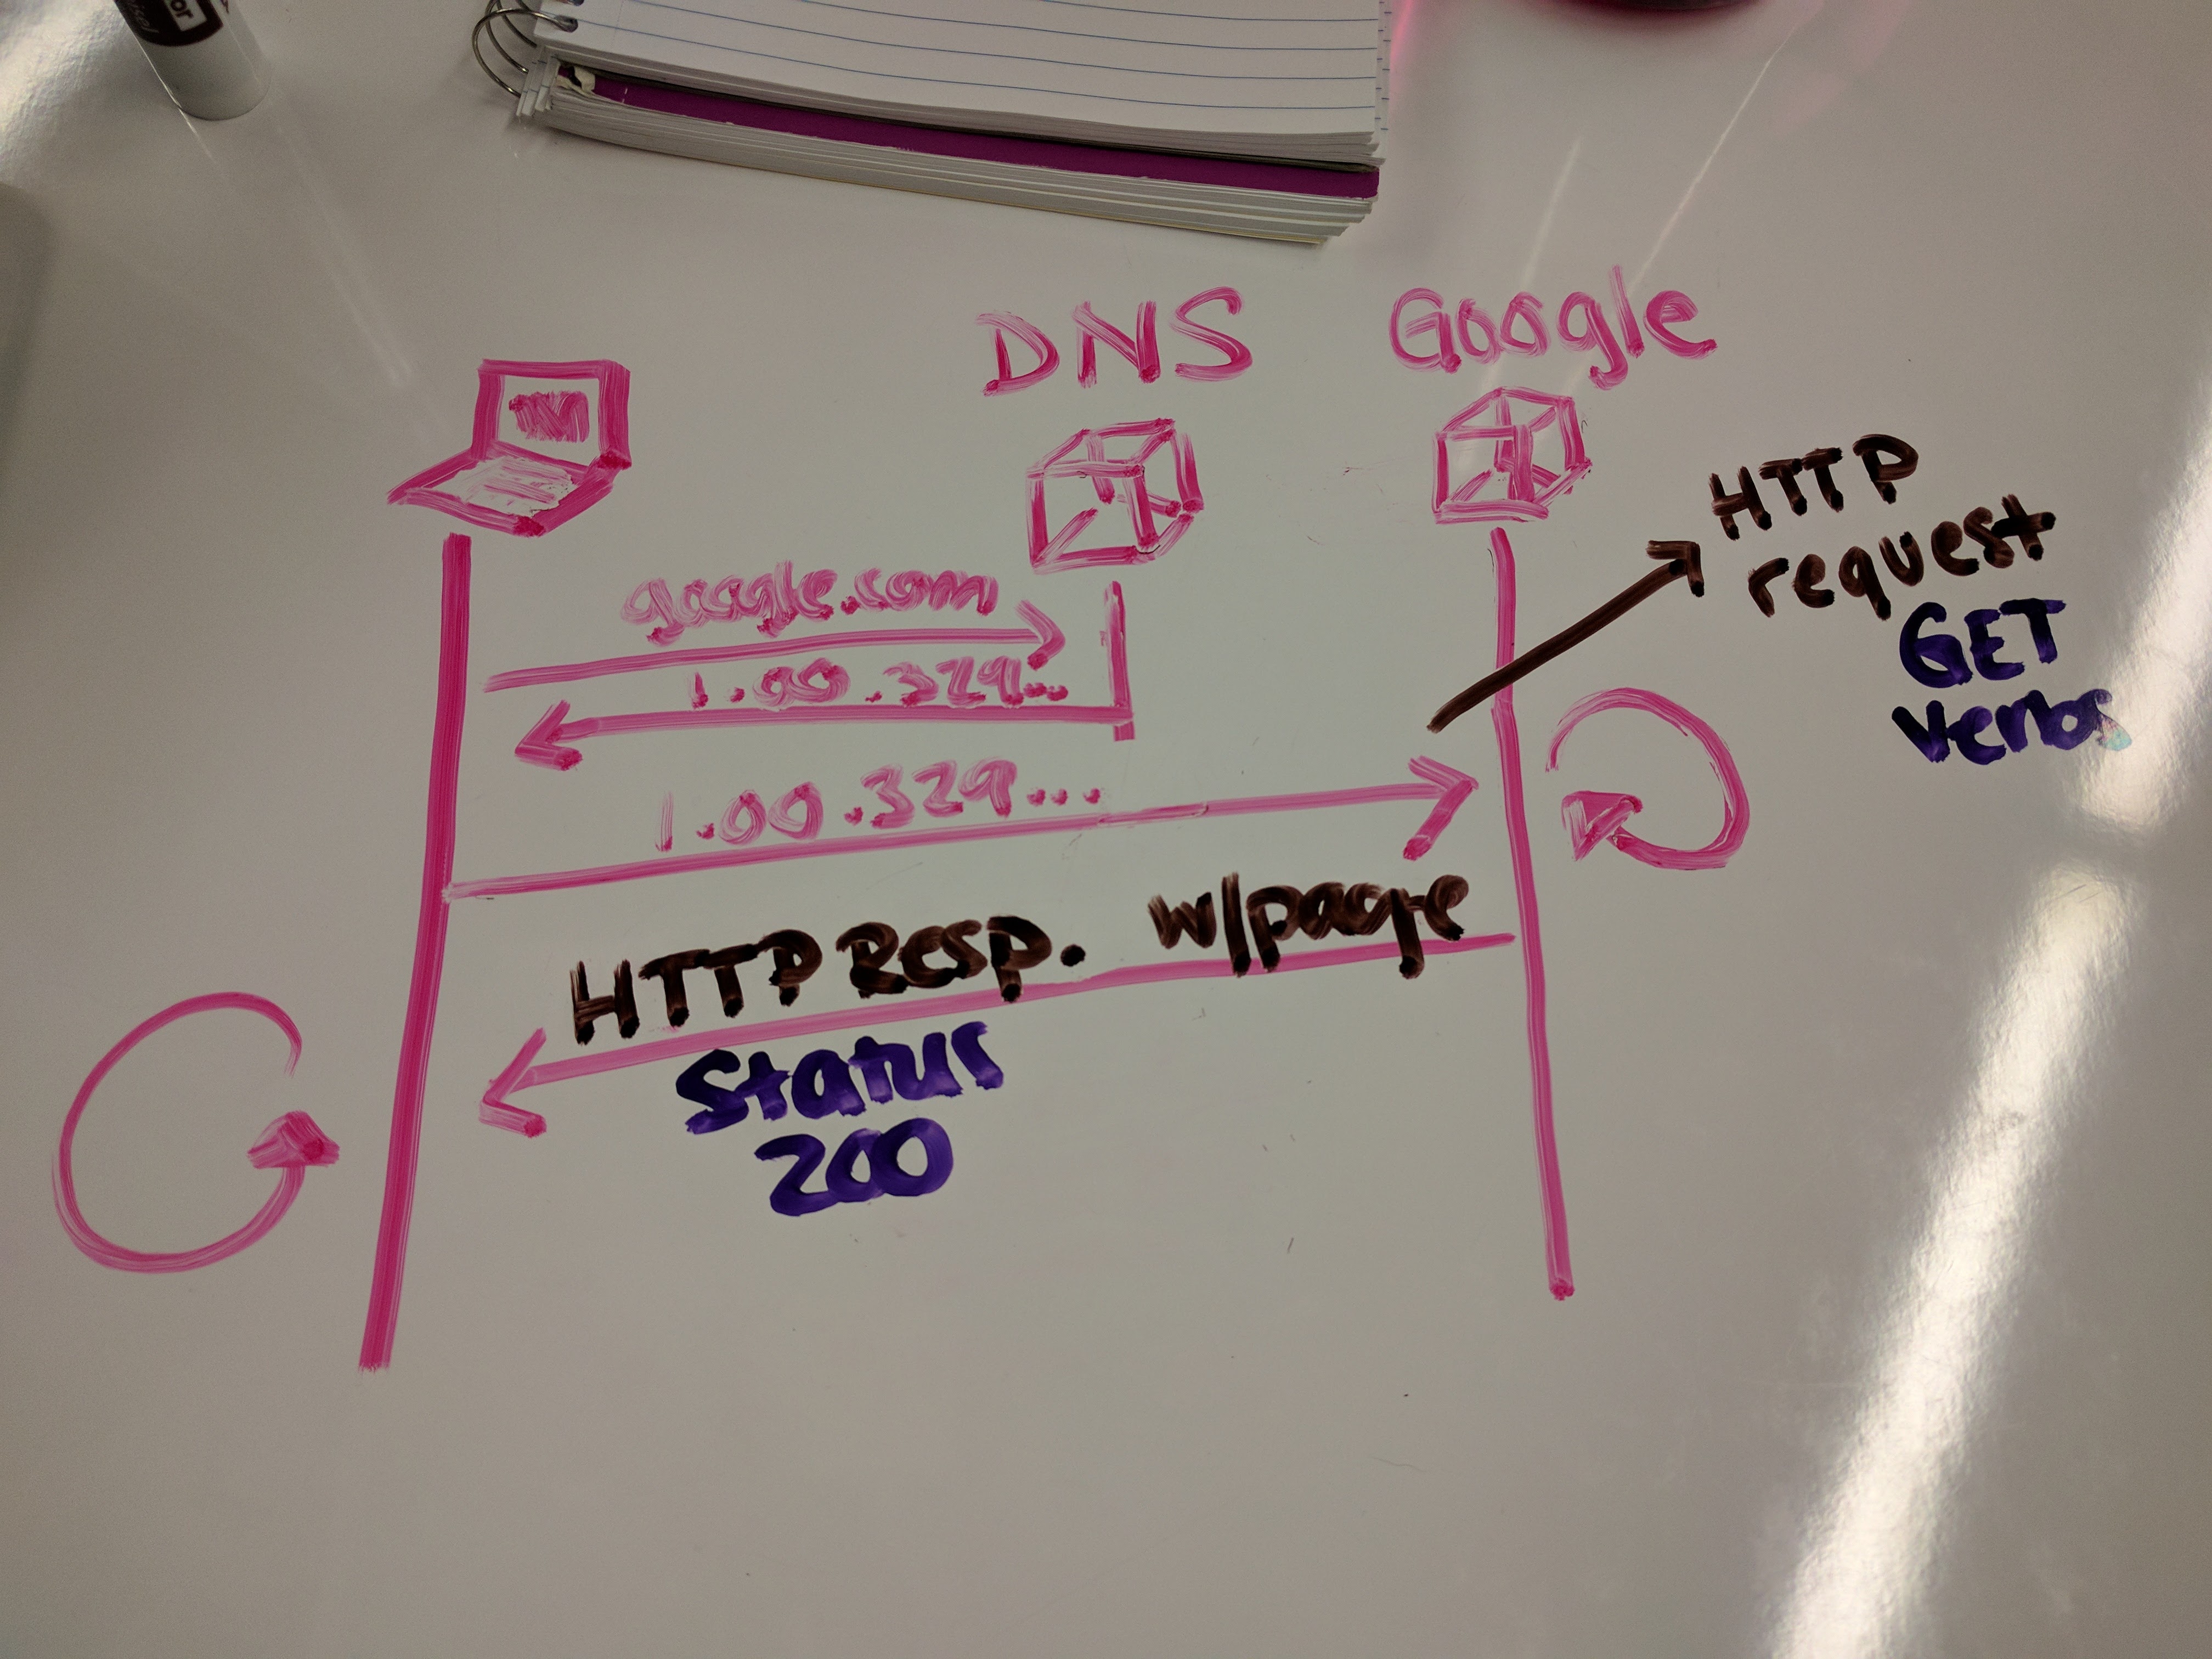 DNS Google
google.com
1.00.329...
1.00.329...
HTTP
request
GET
verbs
HTTP Resp. w/page
Status
200
or